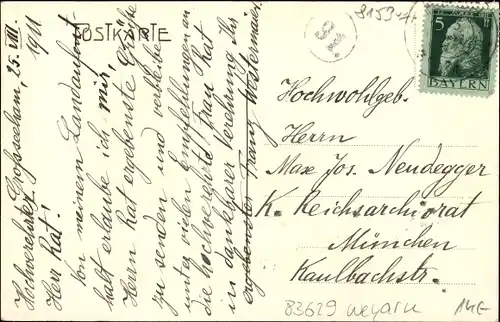 POSTKARTE
Grossseeham, 25. VIII. 1911
Hochverehrter
Herr Rat!
Von meinem Landaufent-
halt erlaube ich mir,
Herrn Rat ergebenste Grüße
zu senden und verbleibe
unter vielen Empfehlungen an
die hochverehrte Frau Rat
in dankbarer Verehrung Ihr
ergebenster Franz Westermaier
5
BAYERN
Hochwohlgeb.
Herrn
Max Jos. Neudegger
K. Reichsarchivrat
München
Kaulbachstr.
83629 Weyarn
14E